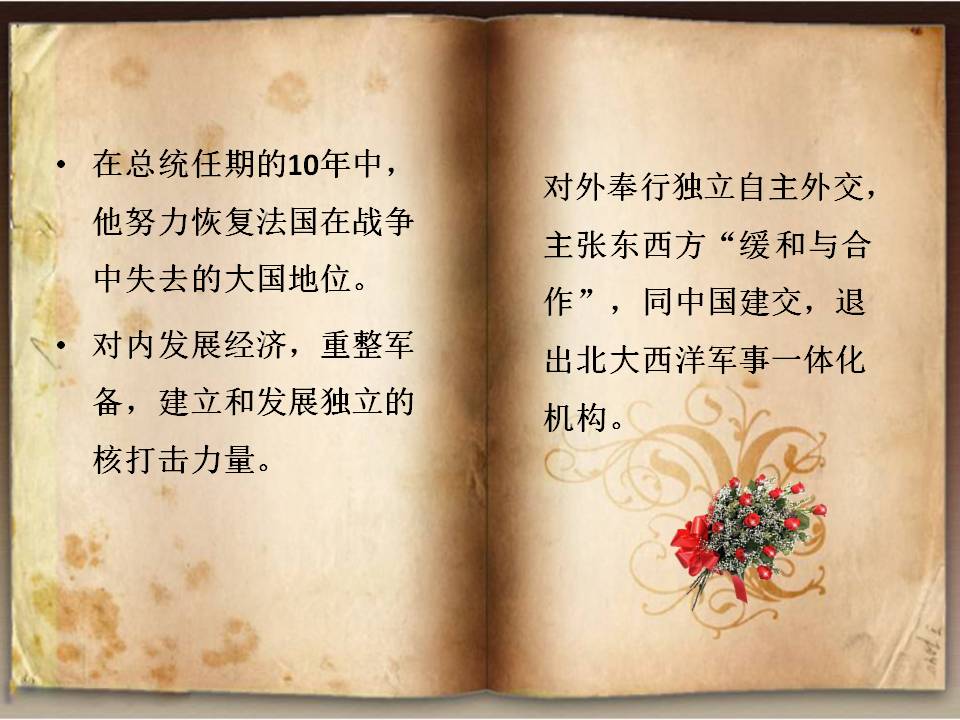 • 在总统任期的10年中，
他努力恢复法国在战争
中失去的大国地位。
• 对内发展经济，重整军
备，建立和发展独立的
核打击力量。
对外奉行独立自主外交，
主张东西方“缓和与合
作”，同中国建交，退
出北大西洋军事一体化
机构。